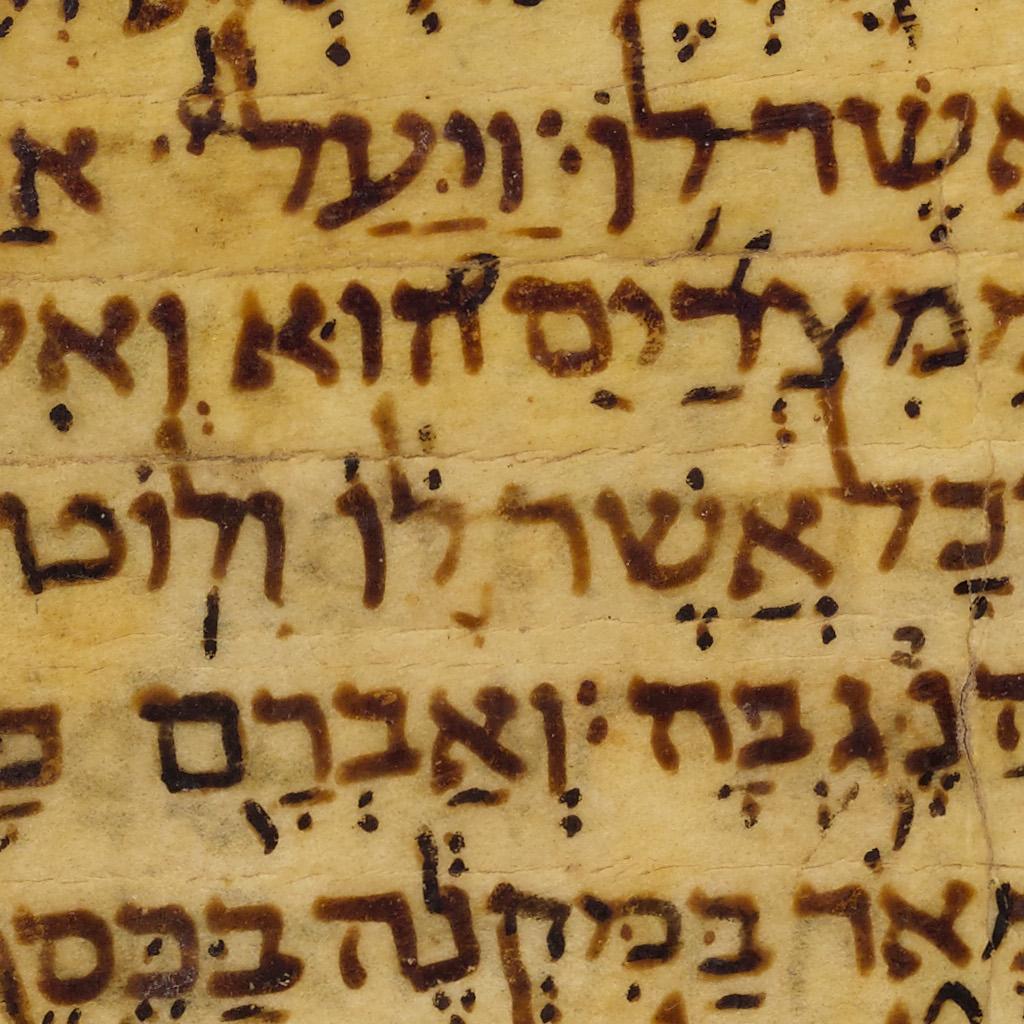 אֲשֶׁר־לוֹ׃ וַיַּעַל
מִצְרַיִם הוּא
כָל אֲשֶׁר לוֹ וְלוֹט
נֶגְבָּה׃ וְאַבְרָם
מְאֹד בַּמִּקְנֶה